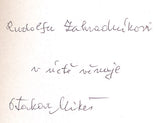 Rudolfu Zahradníkovi
v úctě věnuje
Otakar Mikeš